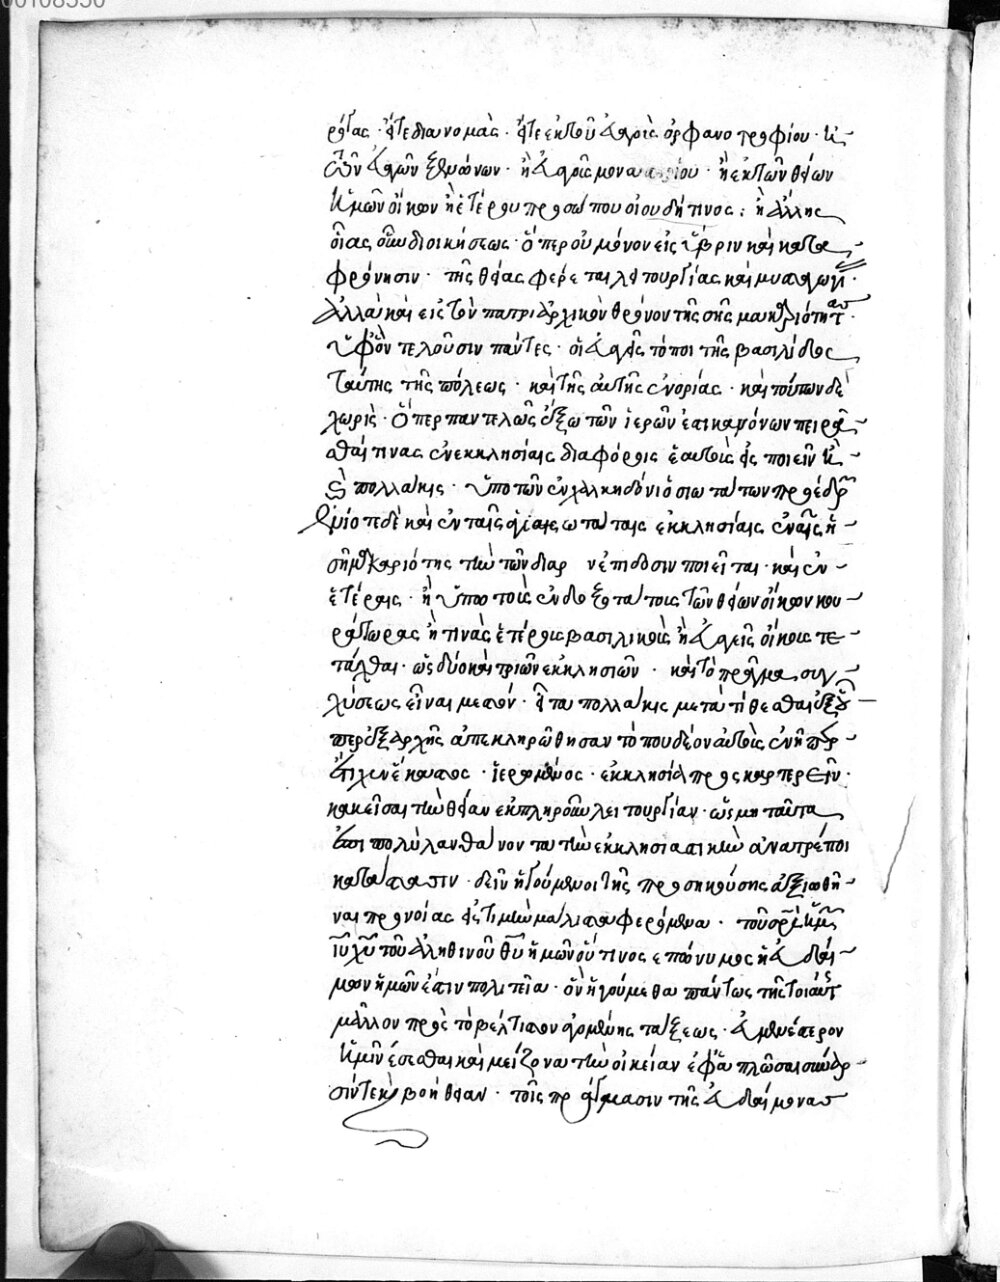 ρόγας · εἴτε διανομὰς · εἴτε ἐκ τοῦ εὐαγοῦς ὀρφανοτροφίου · ἢ
τῶν εὐαγῶν ξενώνων · ἢ εὐαγοῦς μοναστηρίου · ἢ ἐκ τῶν θείων
ἡμῶν οἴκων ἢ ἑτέρου προσώπου οἱουδήτινος : ἢ ἄλλης
οἵας οὖν διοικήσεως · ὅπερ οὐ μόνον εἰς ὕβριν καὶ κατα
φρόνησιν · τῆς θείας φέρεται λειτουργίας καὶ μυσταγωγί ·
ἀλλὰ καὶ εἰς τὸν πατριαρχικὸν θρόνον τῆς σῆς μακαριότητ ·
ὑφ' ὃν τελοῦσιν πάντες · οἱ εὐαγεῖς τόποι τῆς βασιλίδος
ταύτης τῆς πόλεως · καὶ τῆς αὐτῆς ἐνορίας · καὶ τούτων δὲ
χωρὶς · ὅπερ παντελῶς ἔξω τῶν ἱερῶν ἐστι κανόνων πειρᾶ
σθαί τινας ἐν ἐκκλησίαις διαφόροις ἑαυτοὺς εἰσποιεῖν
πολλάκις · ὑπὸ τῶν ἐν χαλκηδόνι ὁσιωτάτων προέδρ
τε δὲ καὶ ἐν ταῖς ἁγιωτάταις ἐκκλησίαις ἐν αἷς ἡ
σὴ μακαριότης τὴν τῶν διαρ νεπίδοσιν ποιεῖται · καὶ ἐν
ἑτέραις · ἢ ὑπὸ τοῖς ἐνδοξοτάτοις τῶν θείων οἴκων κου
ράτωρας ἤ τινας ἑτέροις βασιλικοῖς ἢ εὐαγεῖς οἴκοις τε
τάχθαι · ὡς δύο καὶ τριῶν ἐκκλησιῶν · καὶ τὸ πρᾶγμα συγ
χύσεως εἶναι μεστόν · εἶτα πολλάκις μετατίθεσθαι ἐξ οὗ
περ ἐξ ἀρχῆς ἀπεκληρώθησαν τόπου δέον αὐτοὺς ἐν ᾗπερ
ἔτυχεν ἕκαστος · ἱερωμένος · ἐκκλησία προσκαρτερεῖν ·
κἀκεῖσαι τὴν θείαν ἐκπληροῦν λειτουργίαν · ὡς μὴ ταῦτα
ἔτι πολὺ λανθάνοντα τὴν ἐκκλησιαστικὴν ἀνατρέποι
κατάστασιν · δεῖν ἡγούμενοι τῆς προσηκούσης ἀξιωθῆ
ναι προνοίας εἰς τιμὴν μάλιστα φερόμενα · τοῦ σρς ἡμῶν
ιυ χυ τοῦ ἀληθινοῦ θυ ἡμῶν οὗτινος ἐπώνυμος ἡ εὐδαί
μων ἡμῶν ἐστιν πολιτεία · ὃν ἡγούμεθα πάντως τῆς τοιαύτ
μᾶλλον πρὸς τὸ βέλτιστον ἀγομένης τάξεως · εὐμενέστερον
ἡμῖν ἔσεσθαι καὶ μείζονα τὴν οἰκείαν ἐφαπλῶσαι συνάρ
σίν τε καὶ βοήθειαν · τοῖς πράγμασιν τῆς εὐδαίμονος